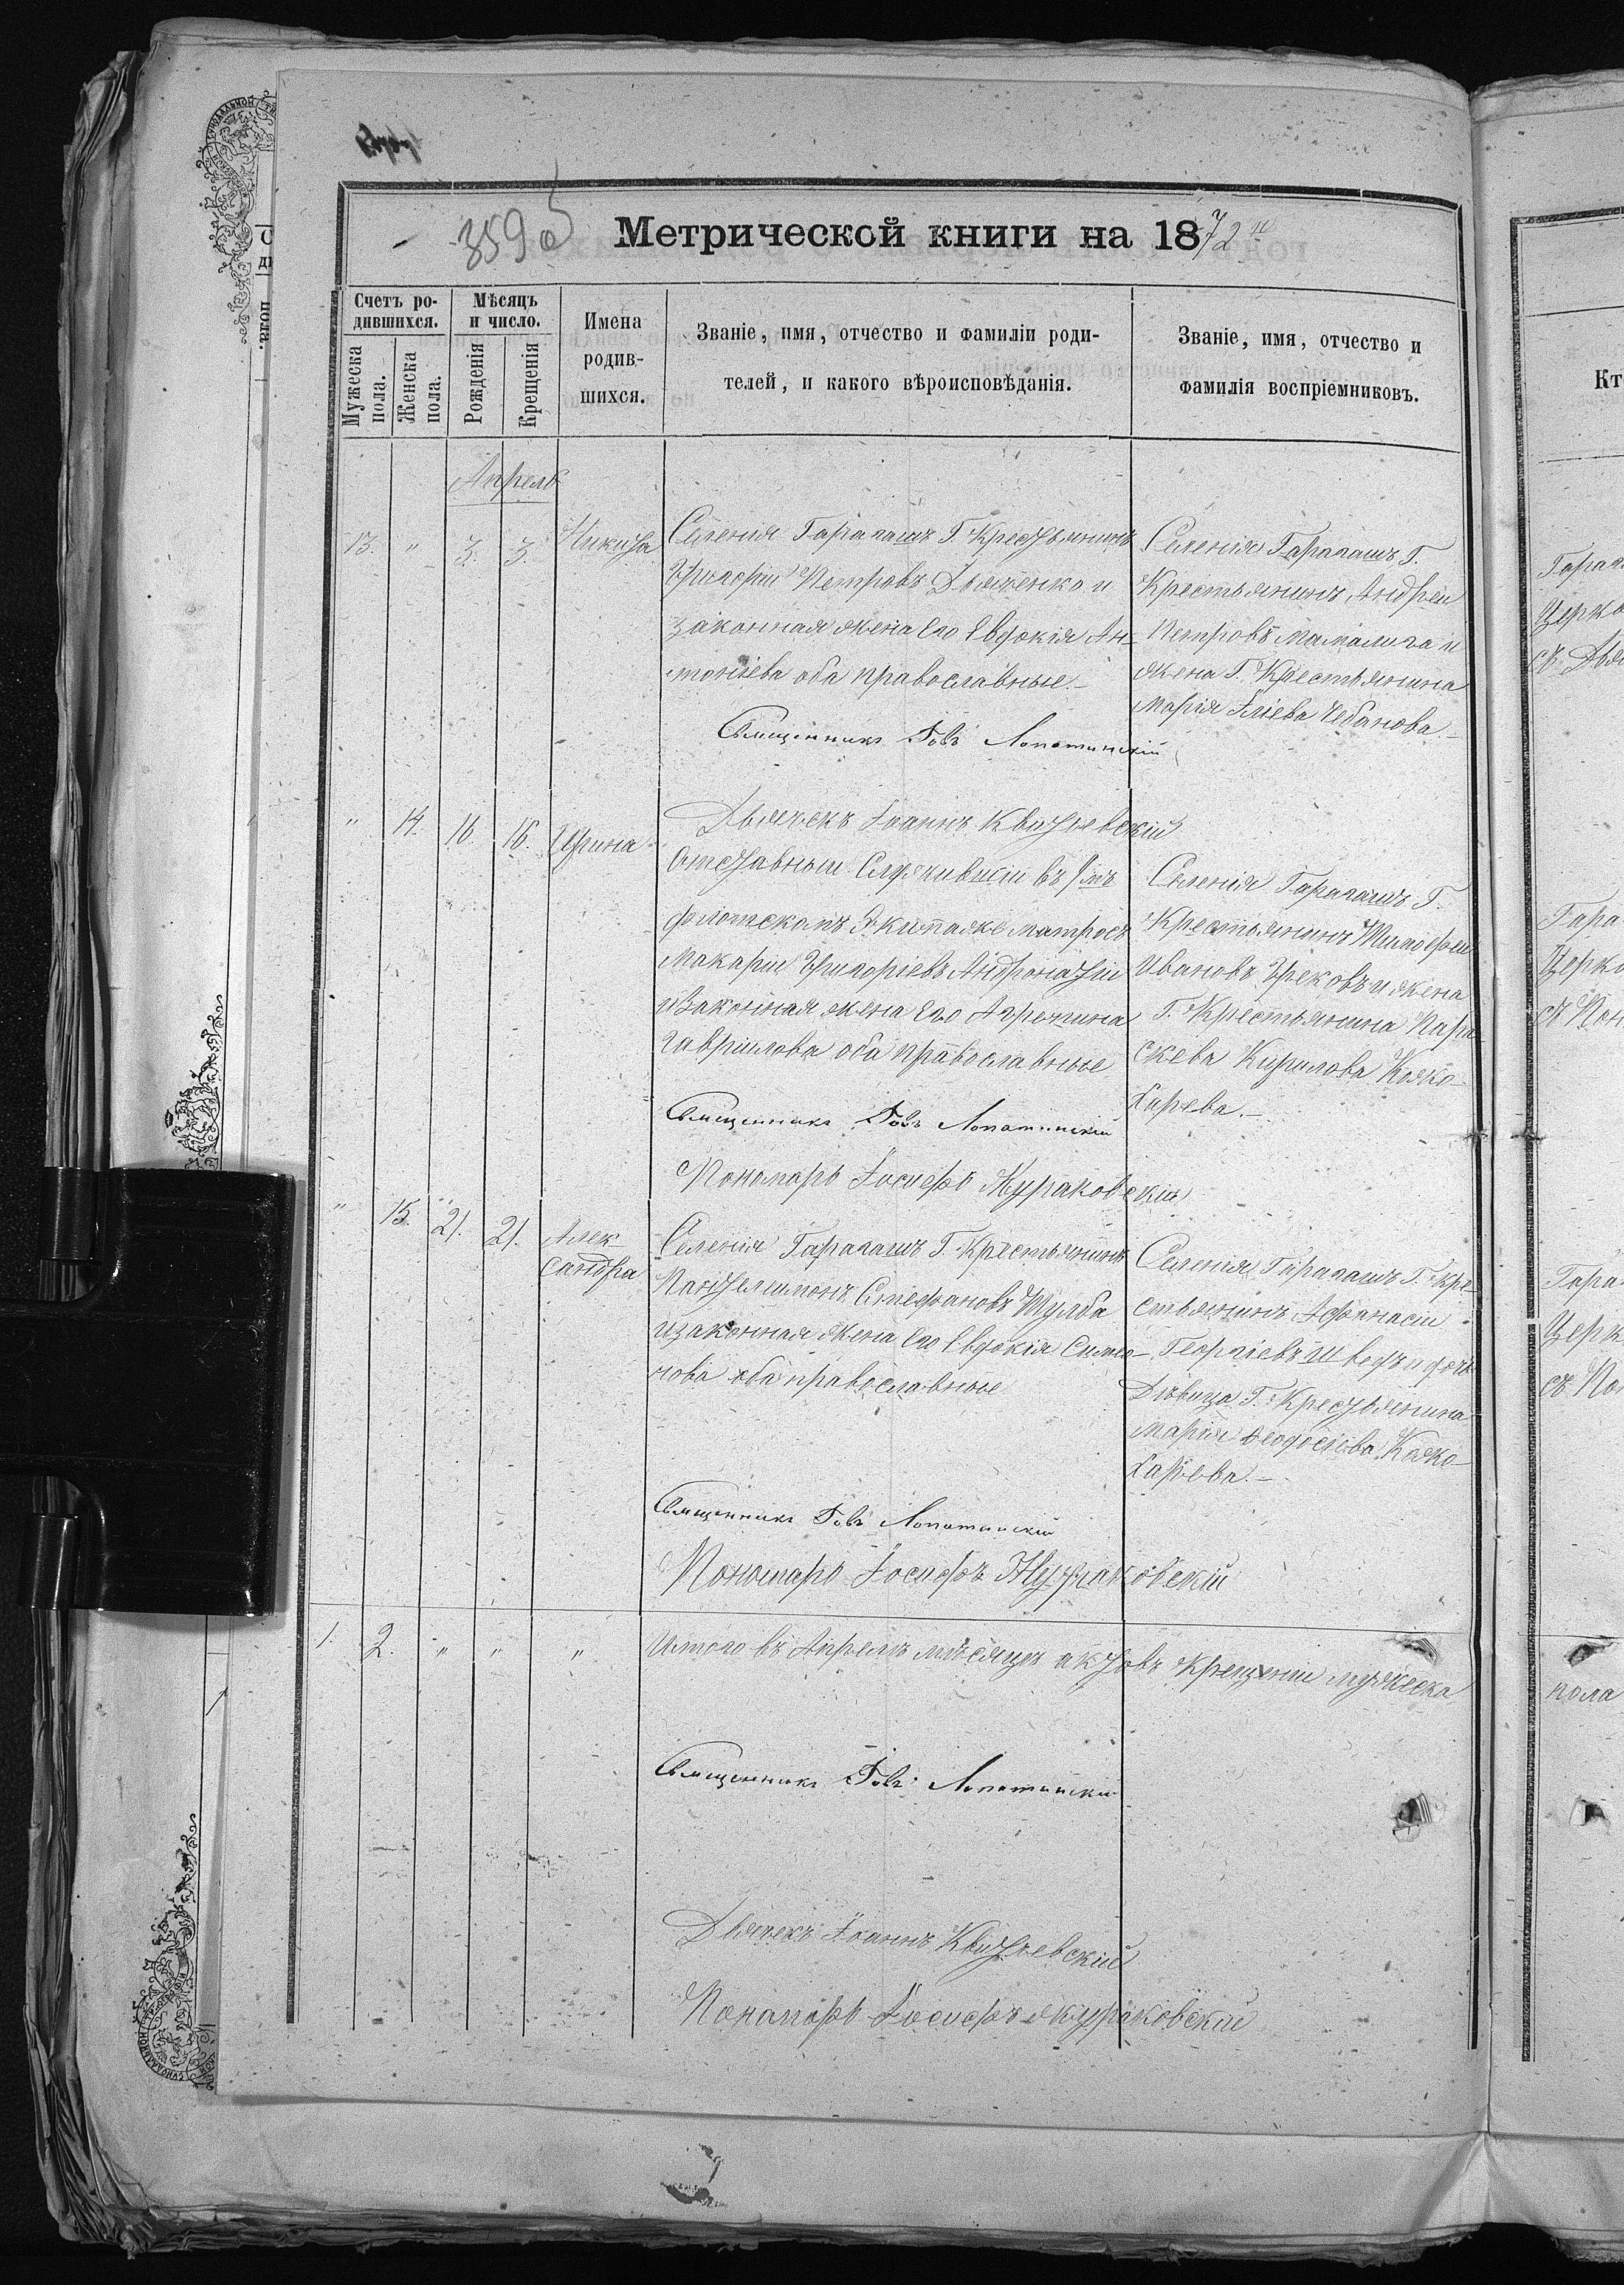 359 об
Метрической книги на 1872й
Счетъ ро-
дившихся.
Мужеска пола.
Женска пола.
Мѣсяцъ
и число.
Рожденія
Крещенія
Имена
родив-
шихся.
Званіе, имя, отчество и фамиліи роди-
телей, и какого вѣроисповѣданія.
Званіе, имя, отчество и
фамилія воспріемниковъ.
Апрель
13. " 3. 3. Никита
Селенія Гарагашъ Г. Крестьянинъ
Григорій Петровъ Дьяченко и
законная жена Его Евдокія Ан-
тоніева оба православные.-
Священникъ Іовъ Лопатинскій
Селенія Гарагашъ Г.
Крестьянинъ Андрей
Петровъ Мамалига и
жена Г. Крестьянина
Марія Іліева Чебанова.-
" 14. 16. 16. Ирина
Дьячекъ Іоаннъ Квитъевскій
Отставный Служившій въ
флотскомъ Экипаже матросъ
Макарій Григоріевъ Андронатій
и Законная жена Его Агрепина
Гаврилова оба православные
Священникъ Іовъ Лопатинскій
Пономарь Іосифъ Жураковскій
Селенія Гарагашъ Г.
Крестьянинъ Тимофей
Ивановъ Грековъ и жена
Г. Крестьянина Пара-
скева Кирилова Кожо-
харева.-
" 15. 21. 21. Алек
сандра
Селенія Гарагашъ Г. Крестьянинъ
Пантелимонъ Стефановъ Шулба
и законная жена Его Евдокія Симео-
нова оба православные
Священникъ Іовъ Лопатинскій
Пономарь Іосифъ Жураковскій
Селенія Гарагашъ Г. Кре-
стьянинъ Афанасій
Георгіевъ Шведъ и дочь
Дѣвица Г. Крестьянина
Марія Феодосіева Кожо-
харева.-
1. 2. " " " Итого въ Апрелѣ мѣсяцѣ актовъ крещеній мужеска
Священникъ Іовъ Лопатинскій
Дьячекъ Іоаннъ Квитъевскій
Пономарь Іосифъ Жураковскій
Кт
Церко
Гара
Церко
Гара
Церк
пола